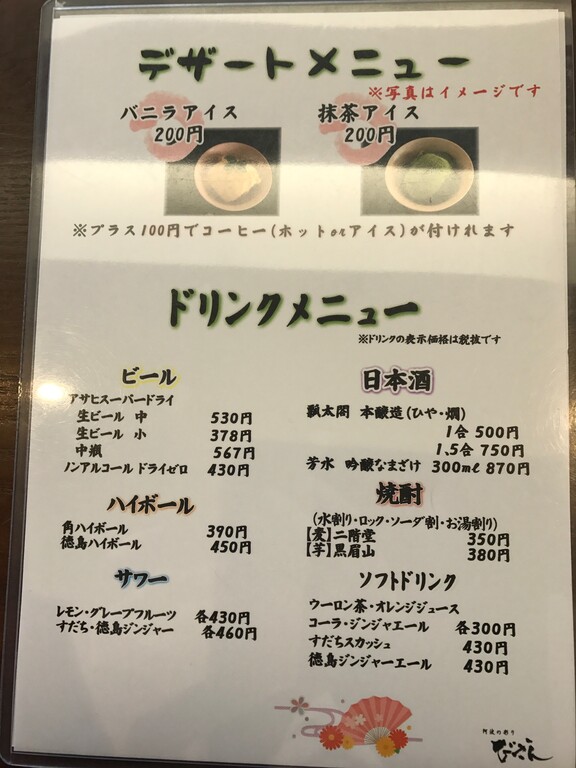 デザートメニュー
※写真はイメージです
バニラアイス
200円
抹茶アイス
200円
※プラス100円でコーヒー(ホットorアイス)が付けれます
ドリンクメニュー
※ドリンクの表示価格は税抜です
ビール
アサヒスーパードライ
生ビール 中 530円
生ビール 小 378円
中瓶 567円
ノンアルコール ドライゼロ 430円
ハイボール
角ハイボール 390円
徳島ハイボール 450円
サワー
レモン・グレープフルーツ 各430円
すだち・徳島ジンジャー 各460円
日本酒
瓢太閤 本醸造(ひや・燗)
1合 500円
1.5合 750円
芳水 吟醸なまざけ 300ml 870円
焼酎
(水割り・ロック・ソーダ割・お湯割り)
【麦】二階堂 350円
【芋】黒眉山 380円
ソフトドリンク
ウーロン茶・オレンジジュース
コーラ・ジンジャエール 各300円
すだちスカッシュ 430円
徳島ジンジャーエール 430円
阿波の彩り